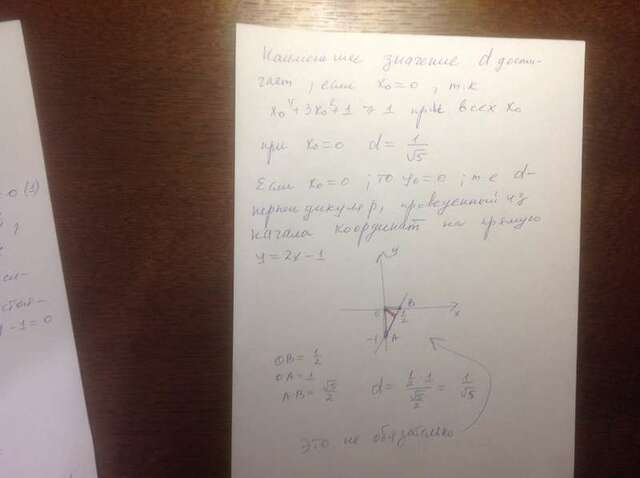 = 0 (3)
- 1 = 0
Наименьшее значение d дости-
гает, если x₀ = 0, т.к
x₀⁴ + 3x₀² + 1 ≥ 1 при всех x₀
при x₀ = 0 d = 1/√5
Если x₀ = 0, то y₀ = 0, т е d-
перпендикуляр, проведенный из
начала координат на прямую
y = 2x - 1
y
0 B
1/2 x
-1 A
OB = 1/2
OA = 1
AB = √5/2 d = (1/2 · 1)/(√5/2) = 1/√5
это не обязательно